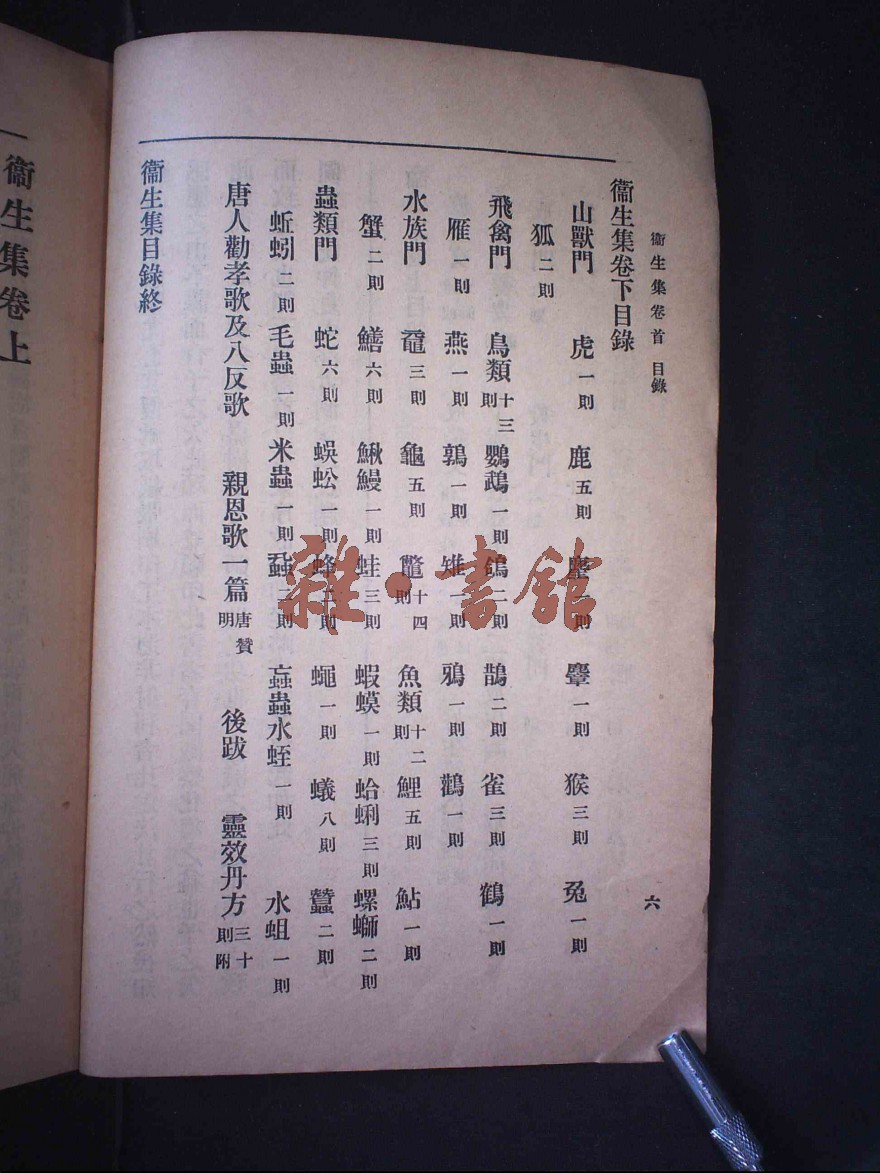 衞生集卷首 目錄 六
衞生集卷下目錄
山獸門 虎一則 鹿五則 麞一則 麞一則 猴三則 兔一則
狐二則
飛禽門 鳥類十三則 鸚鵡一則 鴿二則 鵲二則 雀三則 鶴一則
雁一則 燕一則 鶉一則 雉一則 鴉一則 鸛一則
水族門 黿三則 龜五則 鼈十四則 魚類十二則 鯉五則 鮎一則
蟹二則 鱔六則 鰍鰻一則 蛙三則 蝦蟆一則 蛤蜊三則 螺螄二則
蟲類門 蛇六則 蜈蚣一則 蜂二則 蠅一則 蟻八則 蠶二則
蚯蚓二則 毛蟲一則 米蟲一則 蝨二則 蝱蟲水蛭一則 水蛆一則
唐人勸孝歌及八反歌 親恩歌一篇明唐贊 後跋 靈效丹方三十則附
衞生集目錄終
衞生集卷上
雜·書館